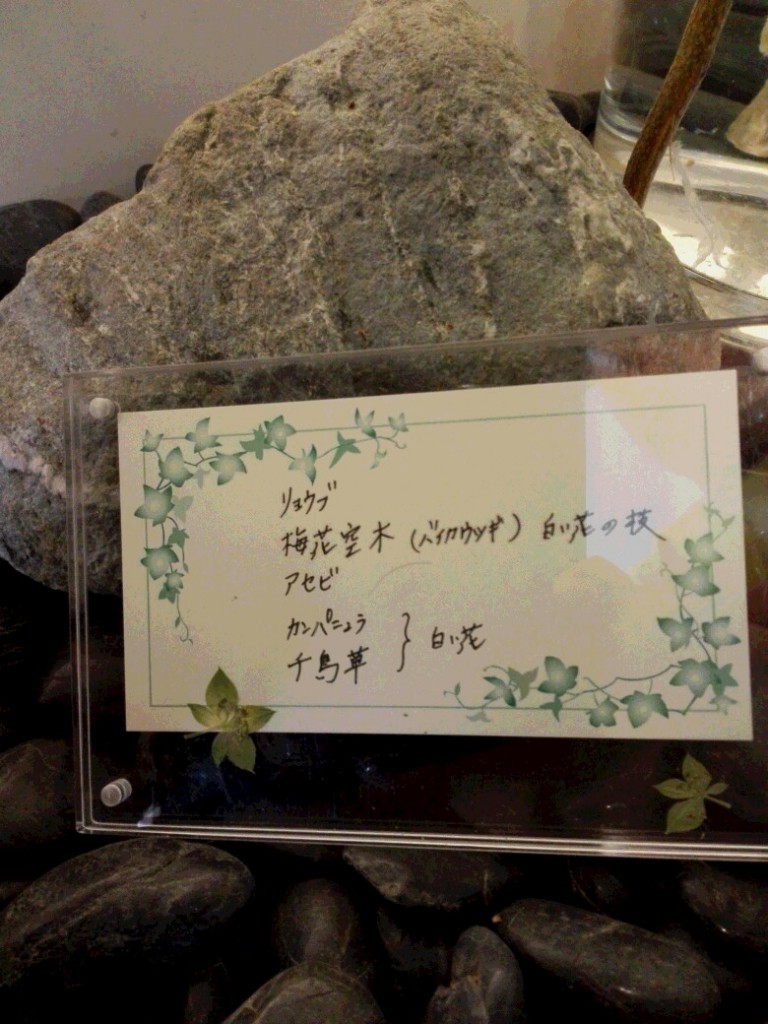 リョウブ
梅花空木 (バイカウツギ) 白い花の枝
アセビ
カンパニュラ
千鳥草 } 白い花